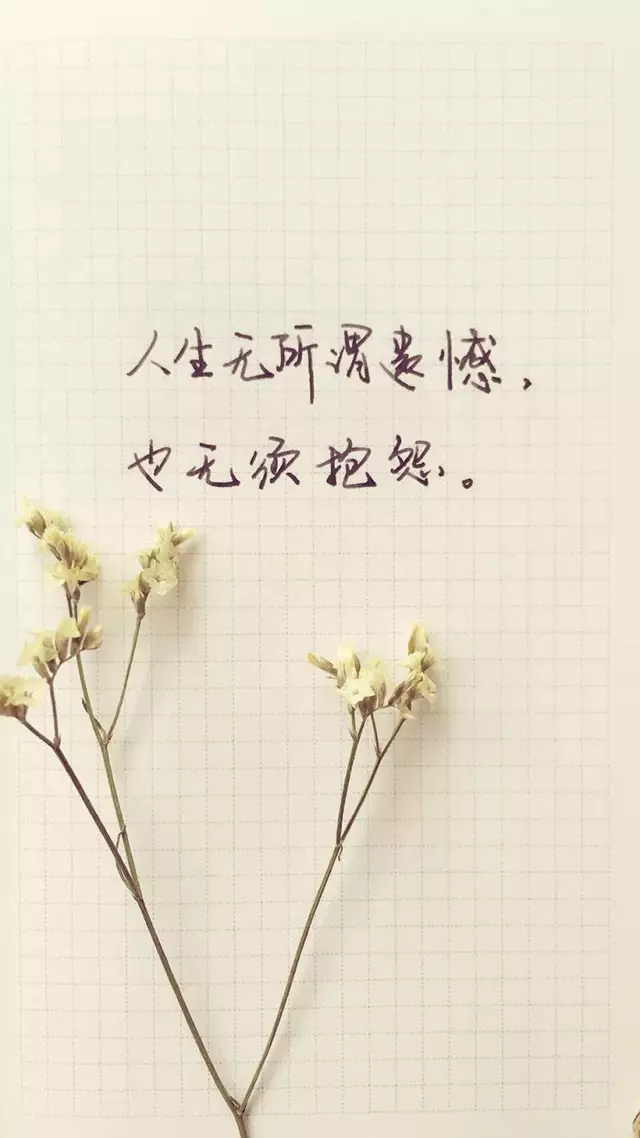 人生无所谓遗憾，
也无须抱怨。